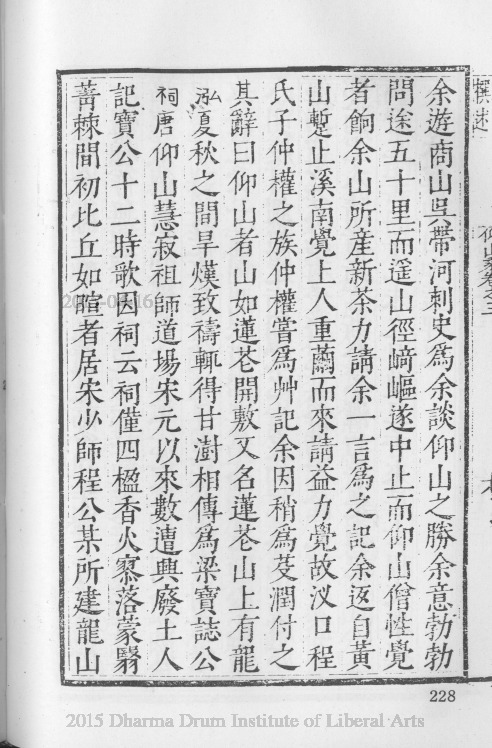 余遊商山吳帶河刺史爲余談仰山之勝余意勃勃
問途五十里而遥山徑﨑嶇遂中止而仰山僧性覺
者餉余山所産新茶力請余一言爲之記余返自黃
山蹔止溪南覺上人重繭而來請益力覺故汊口程
氏子仲權之族仲權嘗爲艸記余因稍爲芟潤付之
其辭曰仰山者山如蓮花開敷又名蓮花山上有龍
泓夏秋之間旱熯致禱輒得甘澍相傳爲梁寶誌公
祠唐仰山慧寂祖師道場宋元以來數遭興廢土人
記寶公十二時歌因祠云祠僅四楹香火寥落蒙翳
菁棘間初比丘如暄者居宋少師程公某所建龍山
228
2015 Dharma Drum Institute of Liberal Arts